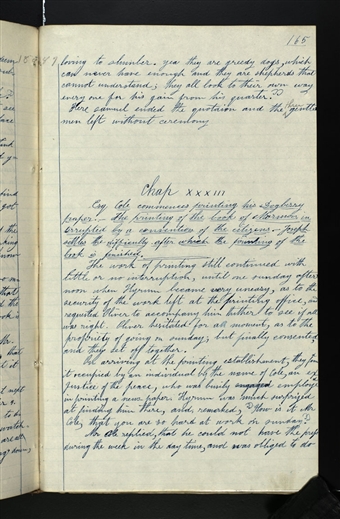 165
loving to slumber. yea they are greedy dogs, which
can never have enough and they are shepherds that
cannot understand; they all look to their own way
every one for his gain from his quarter."
Here carinel ended the quotaion and the gentle
men left without ceremony
Chap XXXIII
Esq. Cole commences printing his Dogberry
paper.— The printing of the book of Mormon in
terrupted by a convention of the citizens — Joseph
settles the difficulty after which the printing of the
book is finished.
The work of printing still continued with
little or no interruption, until one sunday after
noon when Hyrum became very uneasy, as to the
security of the work left at the printing office, and
requested Oliver to accompany him hither to see if all
was right. Oliver hesitated for all moment, as to the
propriety of going on sunday; but finally consented
and they set off together.
On arriving at the printing establishment, they fou
it occupied by an individual by the name of Cole, an ex
justice of the peace, who was busily engaged employe
in printing a new paper. Hyrum was much surprized
at finding him there, and, remarked, "How is it Mr
Cole, that you are so hard at work on sunday?
Mr. Cole replied, that he could not have the pres
during the week in the day time, and was obliged to do